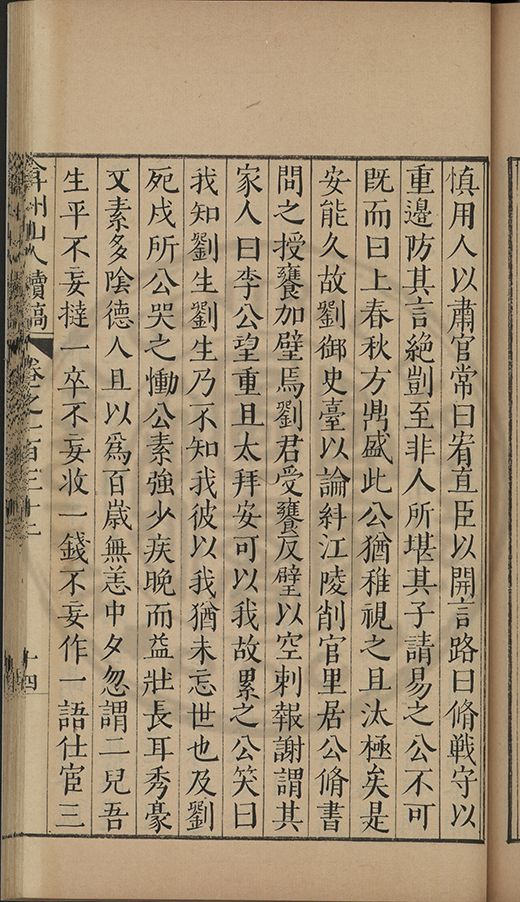 慎用人以肅官常曰宥直臣以開言路曰脩戰守以
重邊防其言絶剴至非人所堪其子請易之公不可
既而曰上春秋方鼎盛此公猶稚視之且汰極矣是
安能久故劉御史臺以論糾江陵削官里居公脩書
問之授饔加璧焉劉君受饔反璧以空刺報謝謂其
家人曰李公望重且太拜安可以我故累之公笑曰
我知劉生劉生乃不知我彼以我猶未忘世也及劉
死戍所公哭之慟公素強少疾晚而益壯長耳秀豪
又素多陰德人且以爲百歲無恙中夕忽謂二兒吾
生平不妄撻一卒不妄收一錢不妄作一語仕宦三
弇州山人續稿 卷之一百三十二 十四